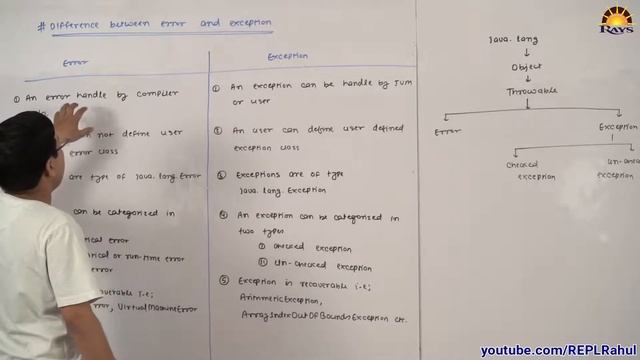 # Difference between error and exception
Error
① An error handle by compiler
not define user
error class
are type of Java.lang.Error
can be categorized in
or run-time error
error
i.e;
error, VirtualMachineError
Exception
① An exception can be handle by JVM
or user
② An user can define user defined
exception class
③ Exceptions are of type
Java.lang.Exception
④ An exception can be categorized in
two types
① checked exception
② Un-checked exception
⑤ Exception in recoverable i.e;
ArithmeticException,
ArrayIndexOutOfBoundsException etc.
Java.lang
Object
Throwable
Error
Exception
Checked
exception
Un-checked
exception
RAYS
youtube.com/REPLRahul